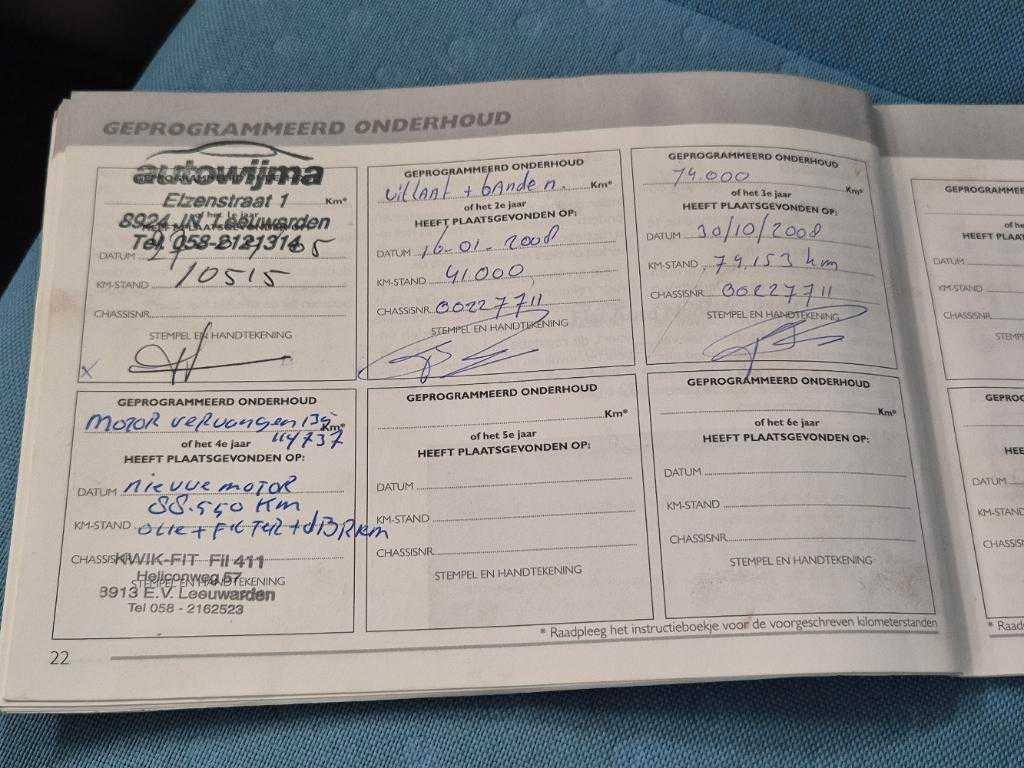 GEPROGRAMMEERD ONDERHOUD
autowijma
Elzenstraat 1
Km*
8924 JN Leeuwarden
Tel. 058-2121314
DATUM
KM-STAND 10515
CHASSISNR.
STEMPEL EN HANDTEKENING
x
GEPROGRAMMEERD ONDERHOUD
uitlaat + banden. Km*
of het 2e jaar
HEEFT PLAATSGEVONDEN OP:
DATUM 16-01-2008
KM-STAND 41.000
CHASSISNR. 00227711
STEMPEL EN HANDTEKENING
GEPROGRAMMEERD ONDERHOUD
74.000 Km*
of het 3e jaar
HEEFT PLAATSGEVONDEN OP:
DATUM 30/10/2008
KM-STAND 74,153 km
CHASSISNR. 00227711
STEMPEL EN HANDTEKENING
GEPROGRAMMEERD ONDERHOUD
MOTOR vervangen Bij Km*
114737
of het 4e jaar
HEEFT PLAATSGEVONDEN OP:
DATUM nieuwe MOTOR
88.550 Km
KM-STAND OLIE + FILTER +
CHASSISNR.
KWIK-FIT Fil 411
Heliconweg 57
STEMPEL EN HANDTEKENING
8913 E.V. Leeuwarden
Tel 058 - 2162523
GEPROGRAMMEERD ONDERHOUD
Km*
of het 5e jaar
HEEFT PLAATSGEVONDEN OP:
DATUM
KM-STAND
CHASSISNR.
STEMPEL EN HANDTEKENING
GEPROGRAMMEERD ONDERHOUD
Km*
of het 6e jaar
HEEFT PLAATSGEVONDEN OP:
DATUM
KM-STAND
CHASSISNR.
STEMPEL EN HANDTEKENING
* Raadpleeg het instructieboekje voor de voorgeschreven kilometerstanden
22
GEPROGRAMMEE
of he
HEEFT PLAATSG
DATUM
KM-STAND
CHASSISNR.
STEMP
GEPROG
HEE
DATUM
KM-STAND
CHASSIS
* Raad